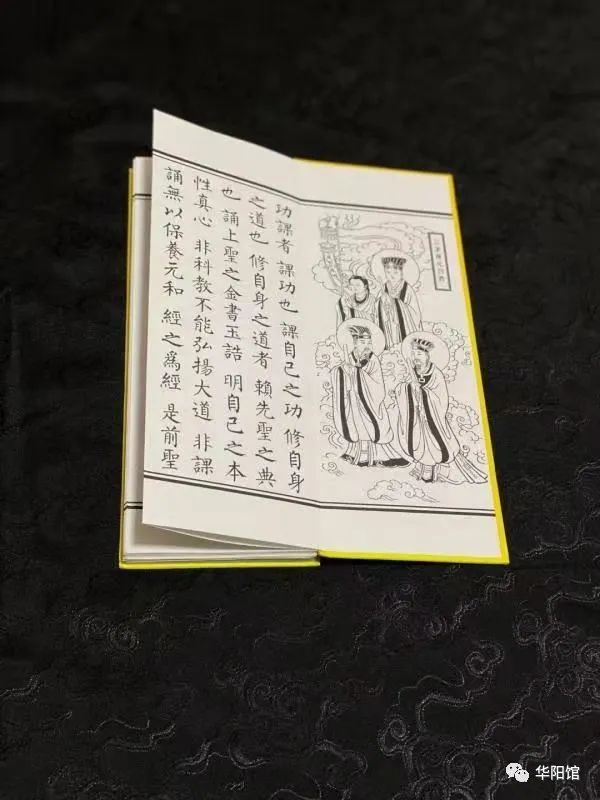 功課者 課功也 課自己之功 修自身
之道也 修自身之道者 賴先聖之典
也 誦上聖之金書玉誥 明自己之本
性真心 非科教不能弘揚大道 非課
誦無以保養元和 經之爲經 是前聖
华阳馆